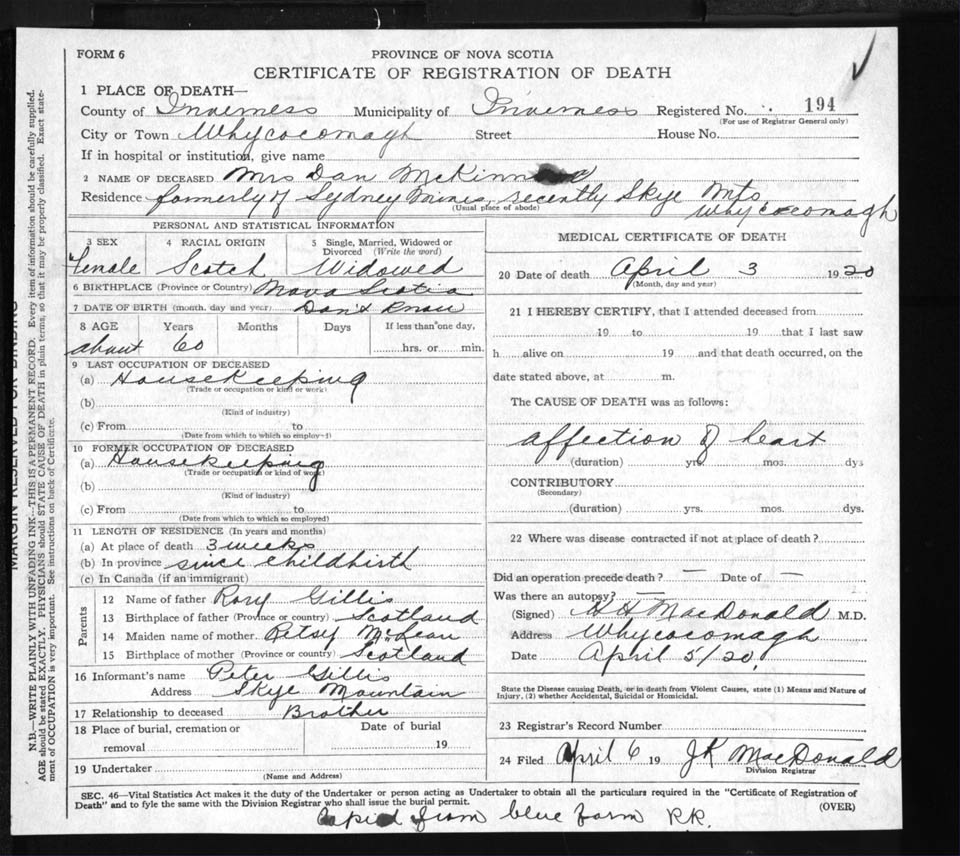 FORM 6
PROVINCE OF NOVA SCOTIA
CERTIFICATE OF REGISTRATION OF DEATH
1 PLACE OF DEATH—
County of Inverness Municipality of Inverness Registered No. 194
(For use of Registrar General only)
City or Town Whycocomagh Street House No.
If in hospital or institution, give name
2 NAME OF DECEASED Mrs Dan McKinn
Residence formerly of Sydney Mines, recently Skye Mts
(Usual place of abode) Whycocomagh
PERSONAL AND STATISTICAL INFORMATION
3 SEX 4 RACIAL ORIGIN 5 Single, Married, Widowed or
Divorced (Write the word)
Female Scotch Widowed
6 BIRTHPLACE (Province or Country) Nova Scotia
7 DATE OF BIRTH (month, day and year) Don't Know
8 AGE Years Months Days If less than one day,
about 60 hrs. or min.
9 LAST OCCUPATION OF DECEASED
(a) Housekeeping
(Trade or occupation or kind of work)
(b)
(Kind of industry)
(c) From to
(Date from which to which so employed)
10 FORMER OCCUPATION OF DECEASED
(a) Housekeeping
(Trade or occupation or kind of work)
(b)
(Kind of industry)
(c) From to
(Date from which to which so employed)
11 LENGTH OF RESIDENCE (In years and months)
(a) At place of death 3 weeks
(b) In province since childbirth
(c) In Canada (if an immigrant)
Parents
12 Name of father Rory Gillis
13 Birthplace of father (Province or country) Scotland
14 Maiden name of mother Betsy McLean
15 Birthplace of mother (Province or country) Scotland
16 Informant's name Peter Gillis
Address Skye Mountain
17 Relationship to deceased Brother
18 Place of burial, cremation or Date of burial
removal 19
19 Undertaker
(Name and Address)
MEDICAL CERTIFICATE OF DEATH
20 Date of death April 3 1920
(Month, day and year)
21 I HEREBY CERTIFY, that I attended deceased from
19 to 19 that I last saw
h alive on 19 and that death occurred, on the
date stated above, at m.
The CAUSE OF DEATH was as follows:
affection of heart
(duration) yrs. mos. dys
CONTRIBUTORY
(Secondary)
(duration) yrs. mos. dys.
22 Where was disease contracted if not at place of death?
Did an operation precede death? — Date of —
Was there an autopsy? —
(Signed) H H MacDonald M.D.
Address Whycocomagh
Date April 5/20.
State the Disease causing Death, or in death from Violent Causes, state (1) Means and Nature of
Injury, (2) whether Accidental, Suicidal or Homicidal.
23 Registrar's Record Number
24 Filed April 6 19 JK MacDonald
Division Registrar
SEC. 46—Vital Statistics Act makes it the duty of the Undertaker or person acting as Undertaker to obtain all the particulars required in the "Certificate of Registration of
Death" and to fyle the same with the Division Registrar who shall issue the burial permit. (OVER)
Copied from blue form R.R.
MARGIN RESERVED FOR BINDING
N.B.—WRITE PLAINLY WITH UNFADING INK—THIS IS A PERMANENT RECORD. Every item of information should be carefully supplied.
AGE should be stated EXACTLY. PHYSICIANS should STATE CAUSE OF DEATH in plain terms, so that it may be properly classified. Exact state-
ment of OCCUPATION is very important. See instructions on back of Certificate.